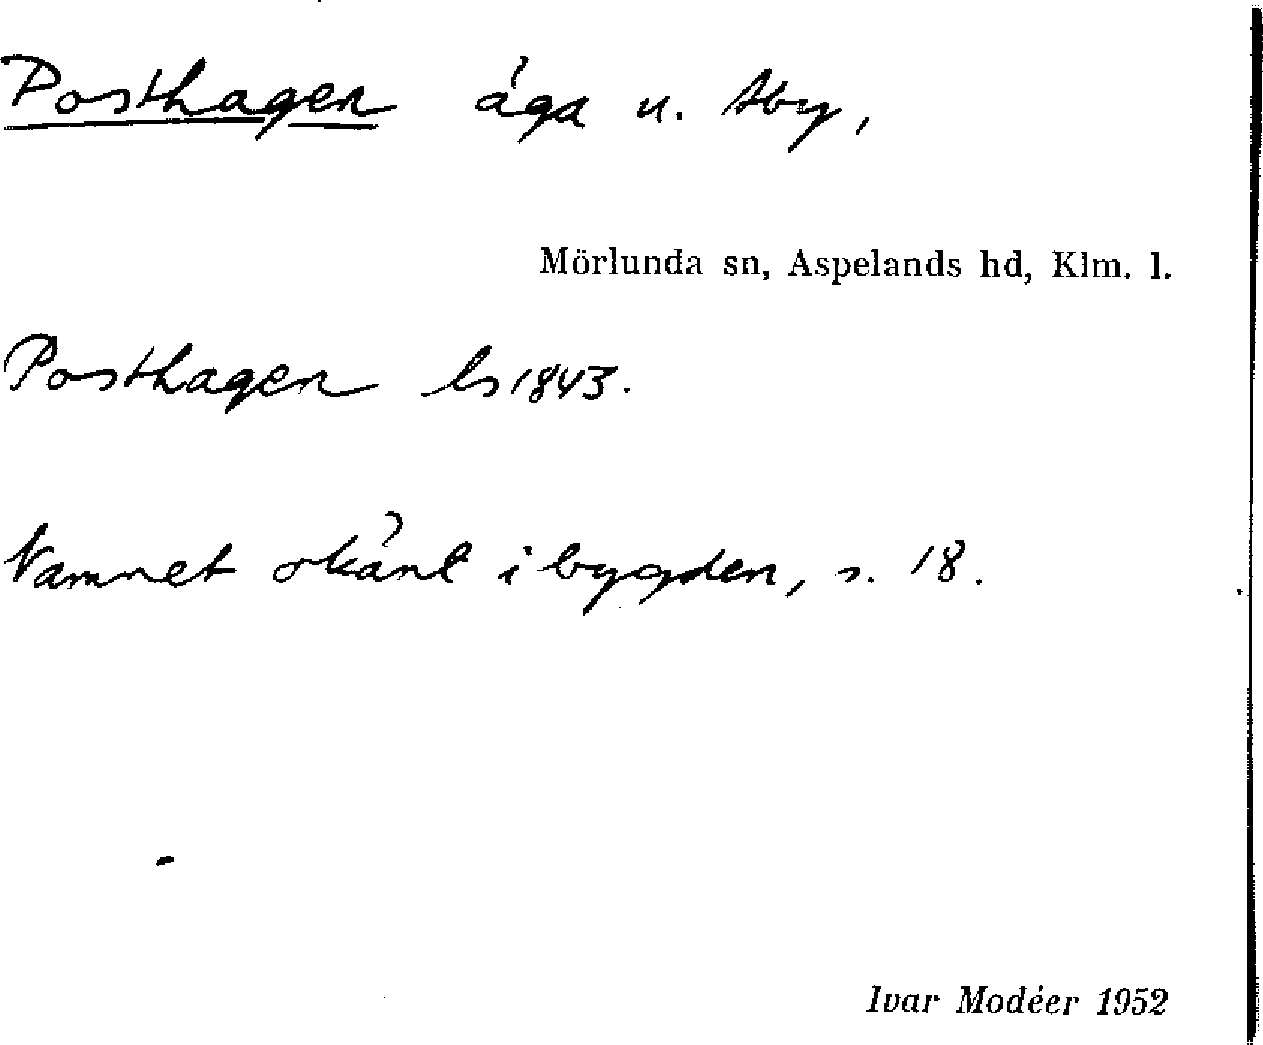 Posthagen äga u. Åby,
Mörlunda sn, Aspelands hd, Klm. l.
Posthagen ls 1843.
Namnet okänt i bygden, s. 18.
Ivar Modéer 1952